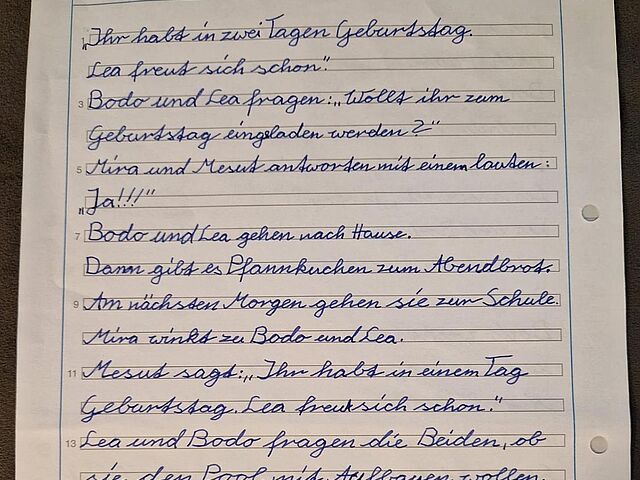 1 „Ihr habt in zwei Tagen Geburtstag.
Lea freut sich schon."
3 Bodo und Lea fragen: „Wollt ihr zum
Geburtstag eingeladen werden?"
5 Mira und Mesut antworten mit einem lauten:
„Ja!!!"
7 Bodo und Lea gehen nach Hause.
Dann gibt es Pfannkuchen zum Abendbrot.
9 Am nächsten Morgen gehen sie zur Schule.
Mira winkt zu Bodo und Lea.
11 Mesut sagt: „Ihr habt in einem Tag
Geburtstag. Lea freut sich schon."
13 Lea und Bodo fragen die Beiden, ob
sie den Pool mit Aufbauen wollen.